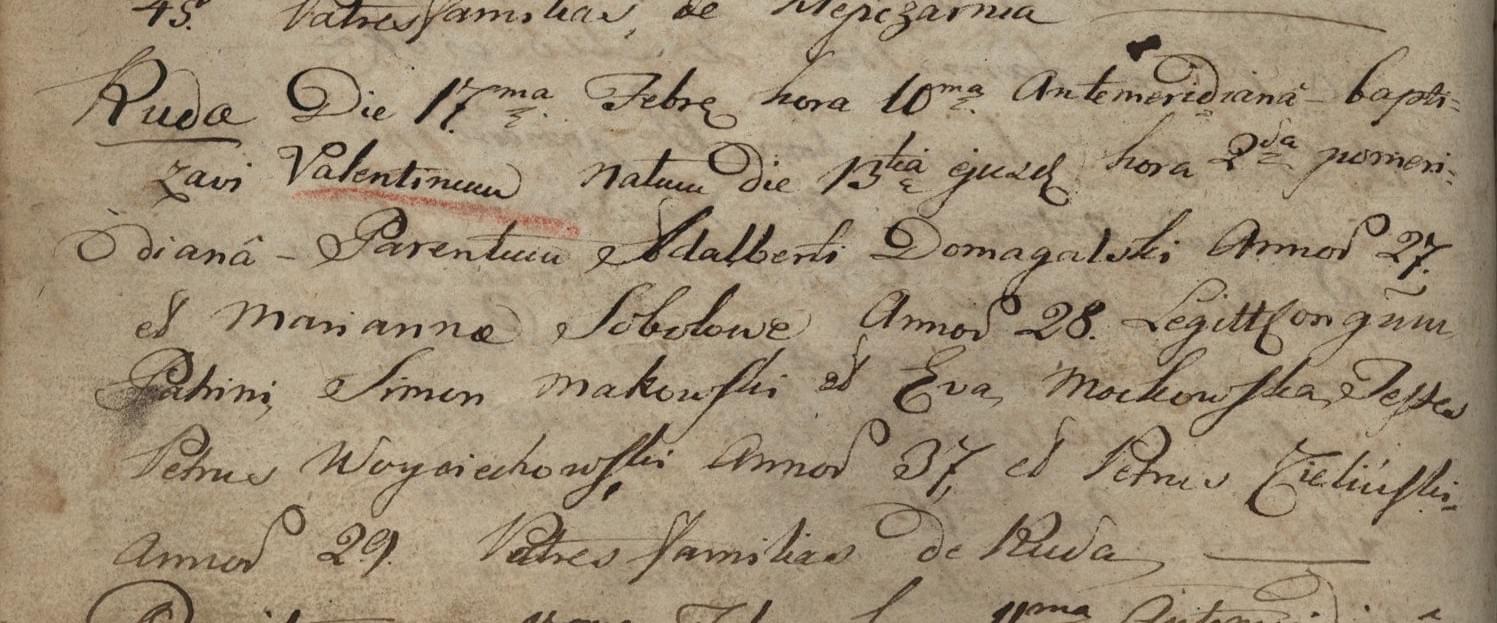 45. Patresfamilias, de
Ruda Die 17ma Febrę hora 10ma Antemeridianâ bapti=
zavi Valentinum natum die 13tia ejusd hora 2da pomeri=
dianâ – Parentum Adalberti Domagalski Annor 27.
et Mariannæ Sobolowe Annor 28. Legitt Conjgũm
Patrini, Simon Makowski et Eva, Mockowska, Testes
Petrus Woyciechowski Annor 37, et Petrus Zieliński
Annor 29. Patresfamilias de Ruda